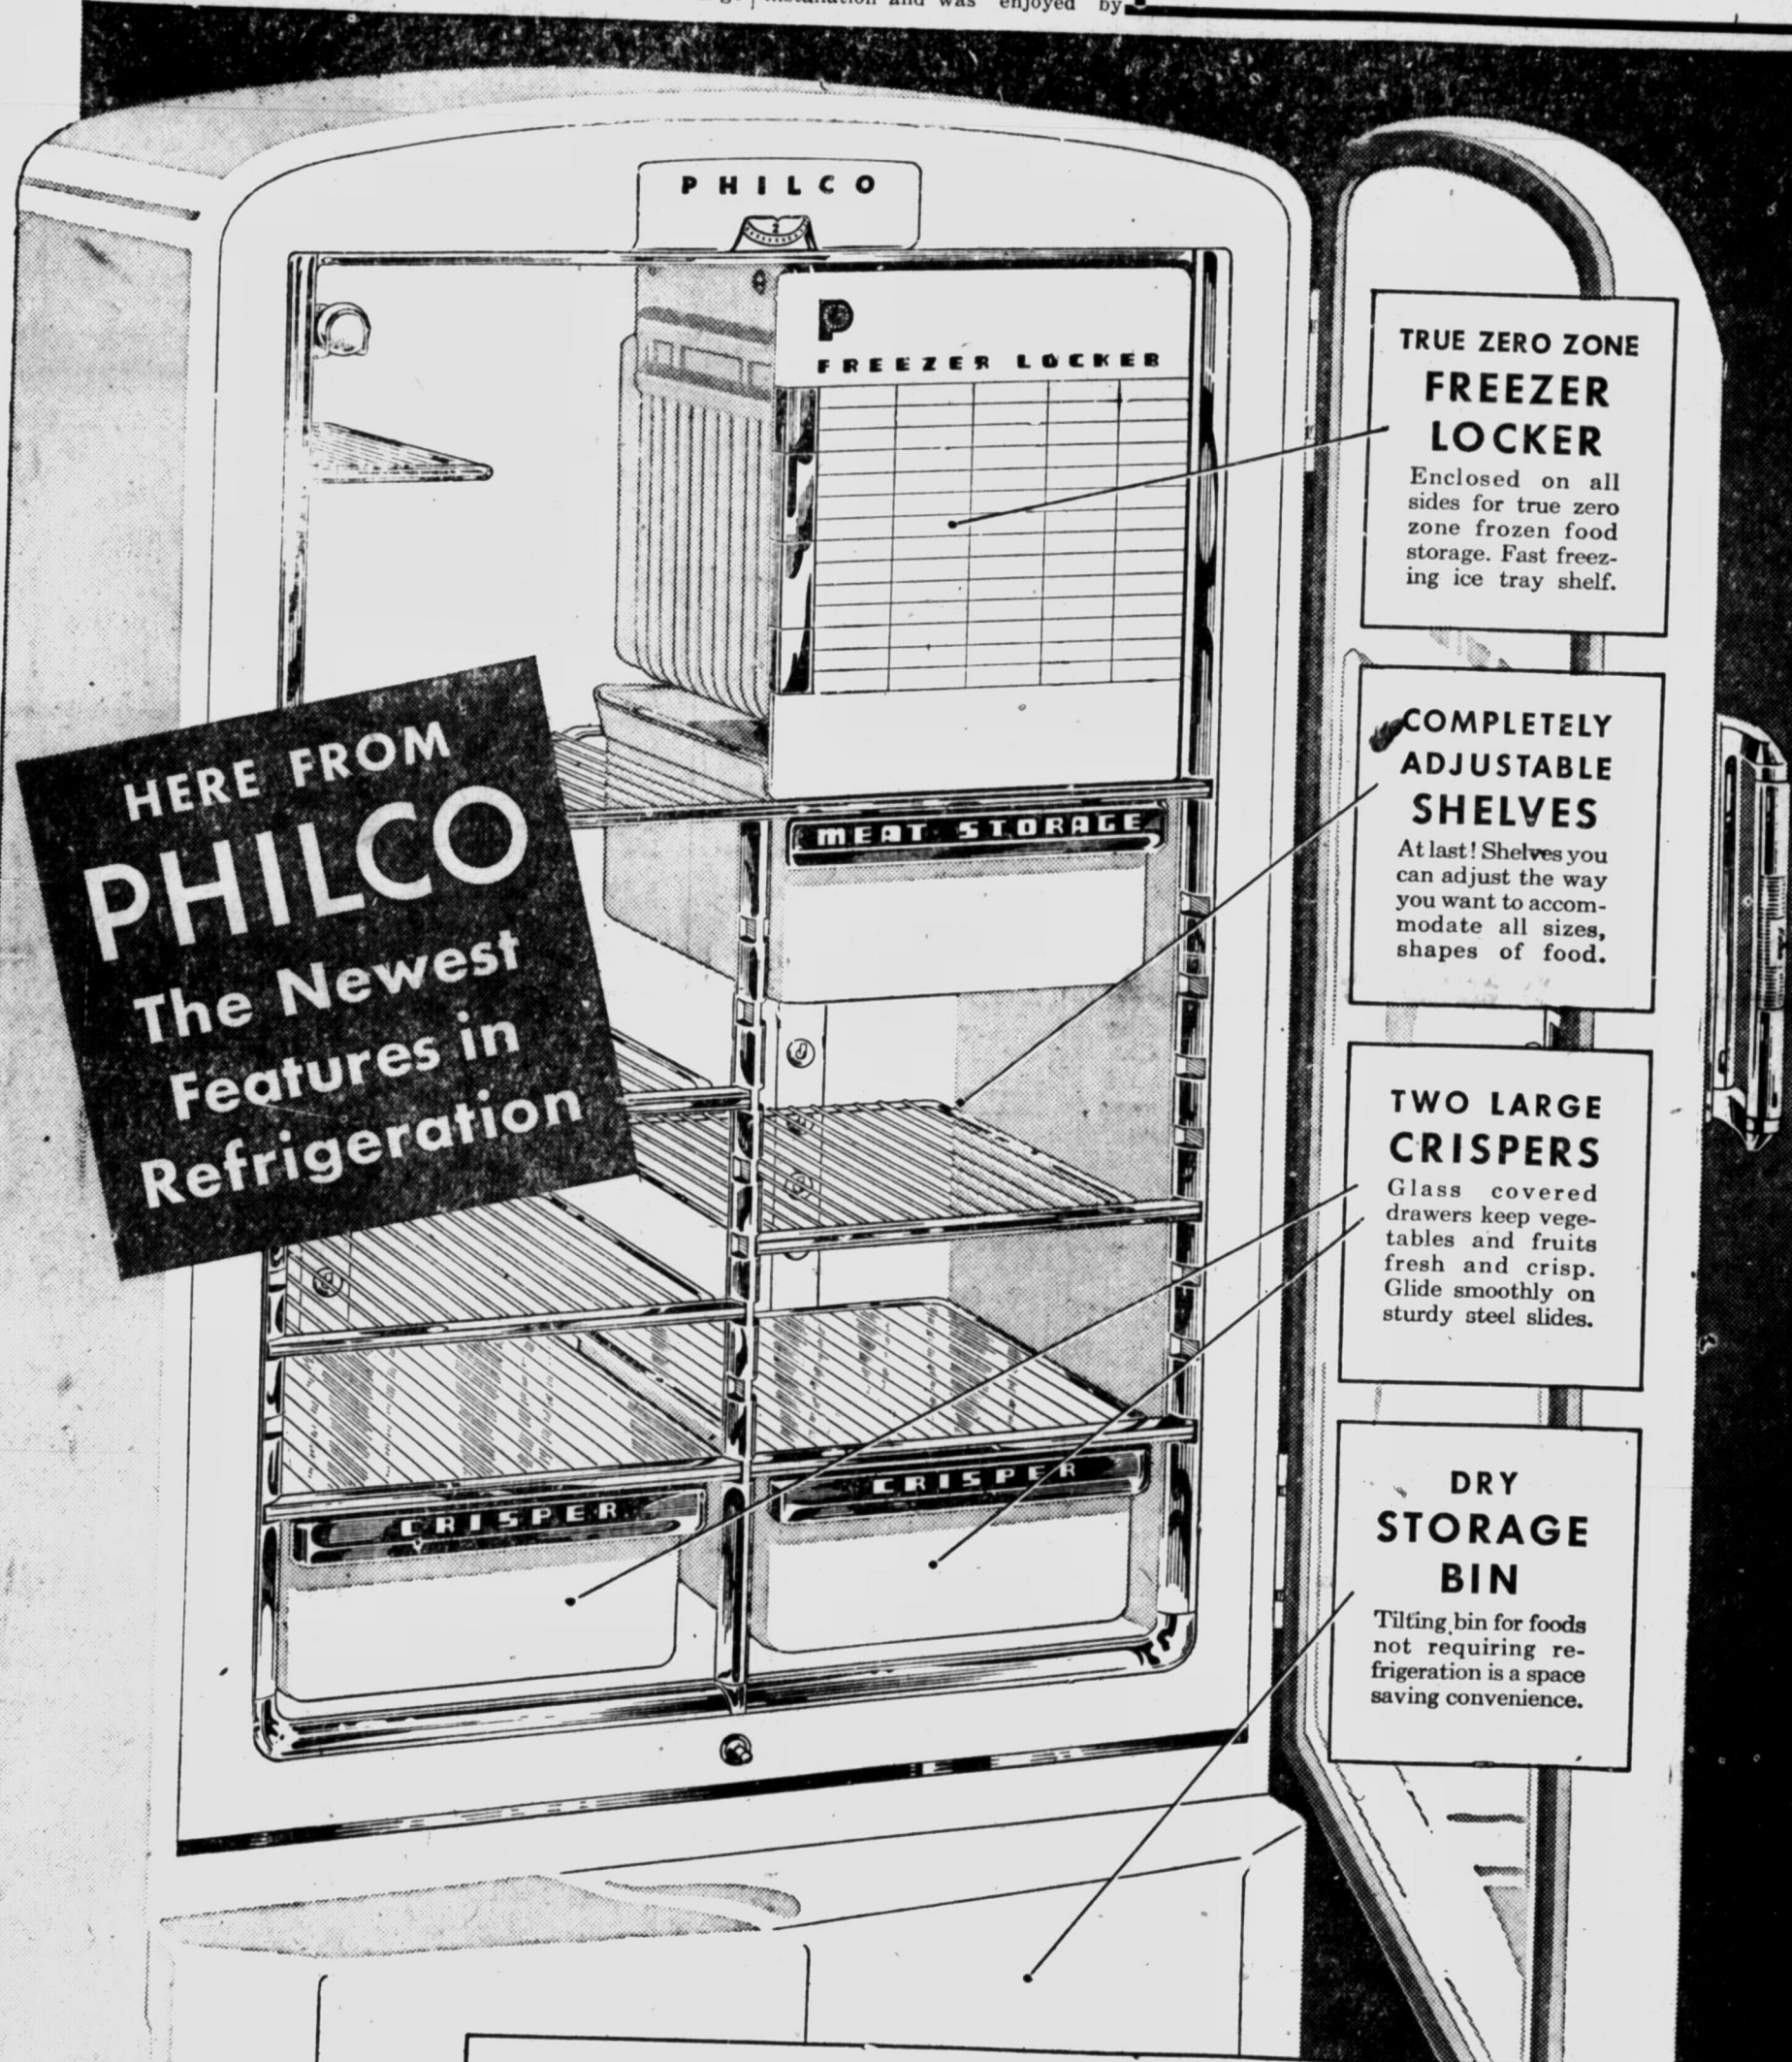 installation and was enjoyed by
PHILCO
2
P
FREEZER LOCKER
MEAT STORAGE
CRISPER
CRISPER
HERE FROM
PHILCO
The Newest
Features in
Refrigeration
TRUE ZERO ZONE
FREEZER
LOCKER
Enclosed on all
sides for true zero
zone frozen food
storage. Fast freez-
ing ice tray shelf.
COMPLETELY
ADJUSTABLE
SHELVES
At last! Shelves you
can adjust the way
you want to accom-
modate all sizes,
shapes of food.
TWO LARGE
CRISPERS
Glass covered
drawers keep vege-
tables and fruits
fresh and crisp.
Glide smoothly on
sturdy steel slides.
DRY
STORAGE
BIN
Tilting bin for foods
not requiring re-
frigeration is a space
saving convenience.